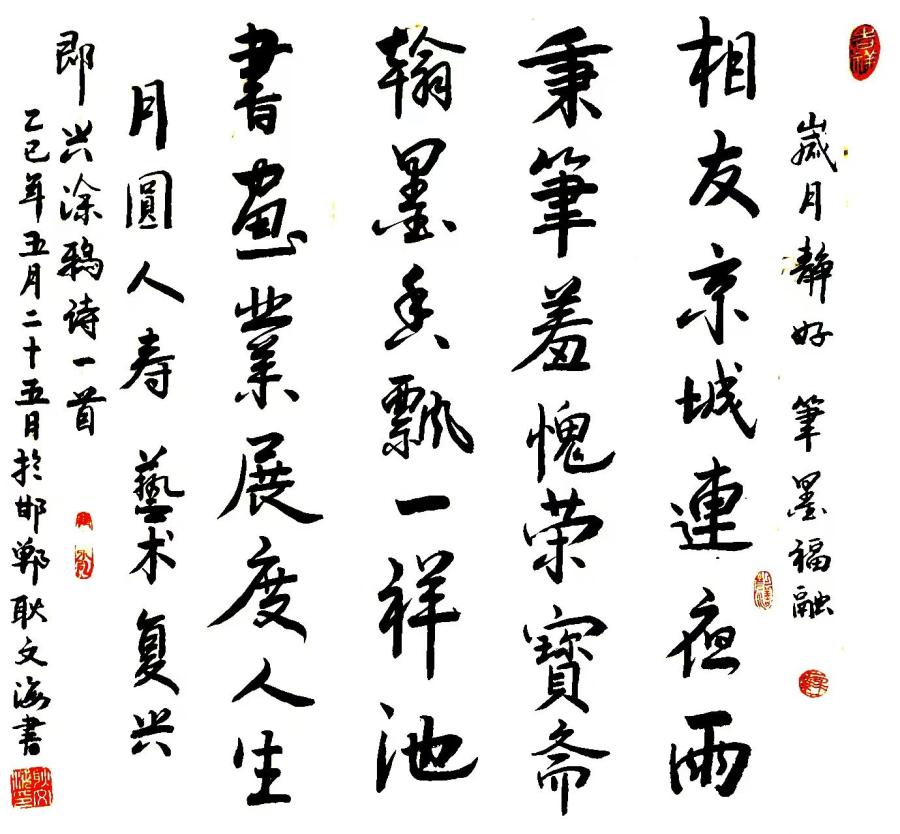 吉祥
歲月靜好 筆墨福融
相友京城連夜雨
秉筆羞愧荣寶斋
翰墨香飄一祥池
書画業展度人生
月圓人寿 藝术复兴
即兴涂鸦诗一首
乙巳年五月二十五日於邯郸耿文海書